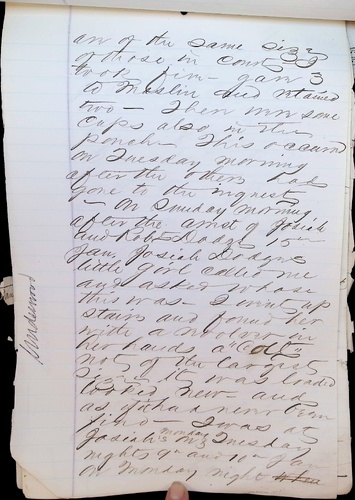 are of the same size
of those in court I
took five - gave 3
to Meslin and retained
two - There were some
caps also in the
pouch - This occurred
on Tuesday morning
after the others had
gone to the inquest
- On Sunday morning
after the arrest of Josiah
and Robt Dodge 15th
Jan. Josiah Dodge's
little girl called me
and asked whose
this was - I went up
stairs and found her
with a revolver in
her hands a "Colt"
not of the largest
size It was loaded
looked new - and
as if it had never been
fired - I was at
Josiah's on monday Tuesday
nights 9th and 10th Jan
on Monday night
Underwood